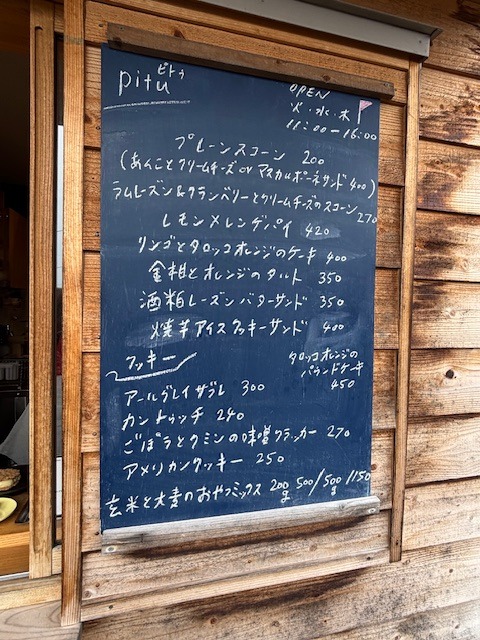 ピトゥ
pitu
OPEN
火・水・木
11:00-16:00
プレーンスコーン 200
(あんことクリームチーズ or マスカルポーネサンド 400)
ラムレーズン&クランベリーとクリームチーズのスコーン 270
レモンメレンゲパイ 420
リンゴとタロッコオレンジのケーキ 400
金柑とオレンジのタルト 350
酒粕レーズンバターサンド 350
焼芋アイスクッキーサンド 400
クッキー
アールグレイサブレ 300
カントゥッチ 240
ごぼうとクミンの味噌クラッカー 270
アメリカンクッキー 250
タロッコオレンジの
パウンドケーキ
450
玄米と大麦のおやつミックス 200g 500/500g 1150